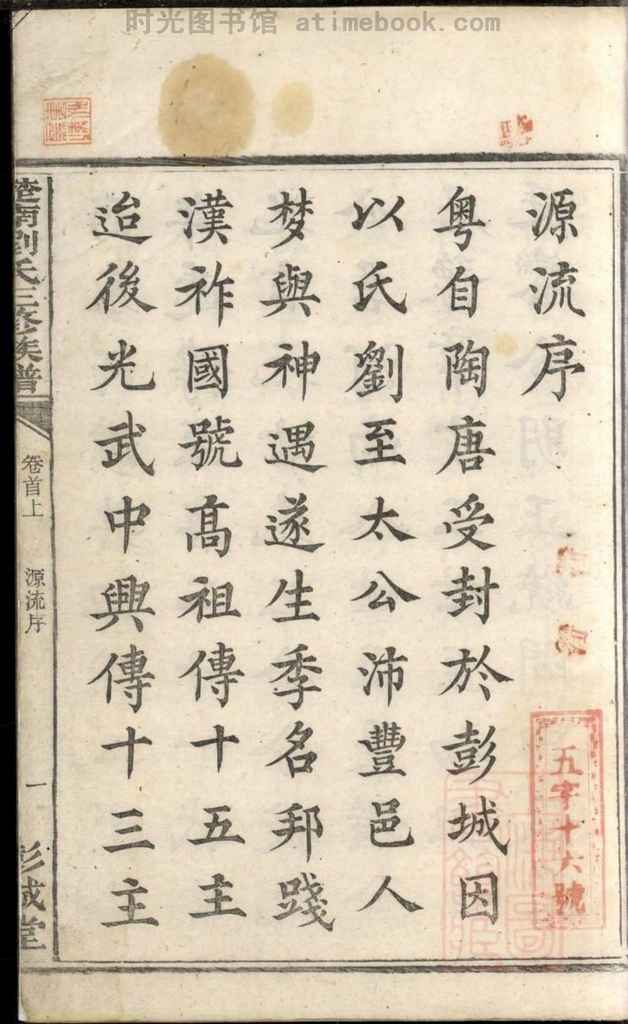 时光图书馆 atimebook.com
源流序
粵自陶唐受封於彭城因
以氏劉至太公沛豐邑人
梦與神遇遂生季名邦踐
漢祚國號高祖傳十五主
迨後光武中興傳十三主
楚南劉氏三修族譜
卷首上
源流序
一
彭城堂
五字十六號